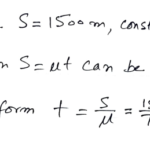 . S = 1500 m, const
n S = ut can be
form t = S/u = 15